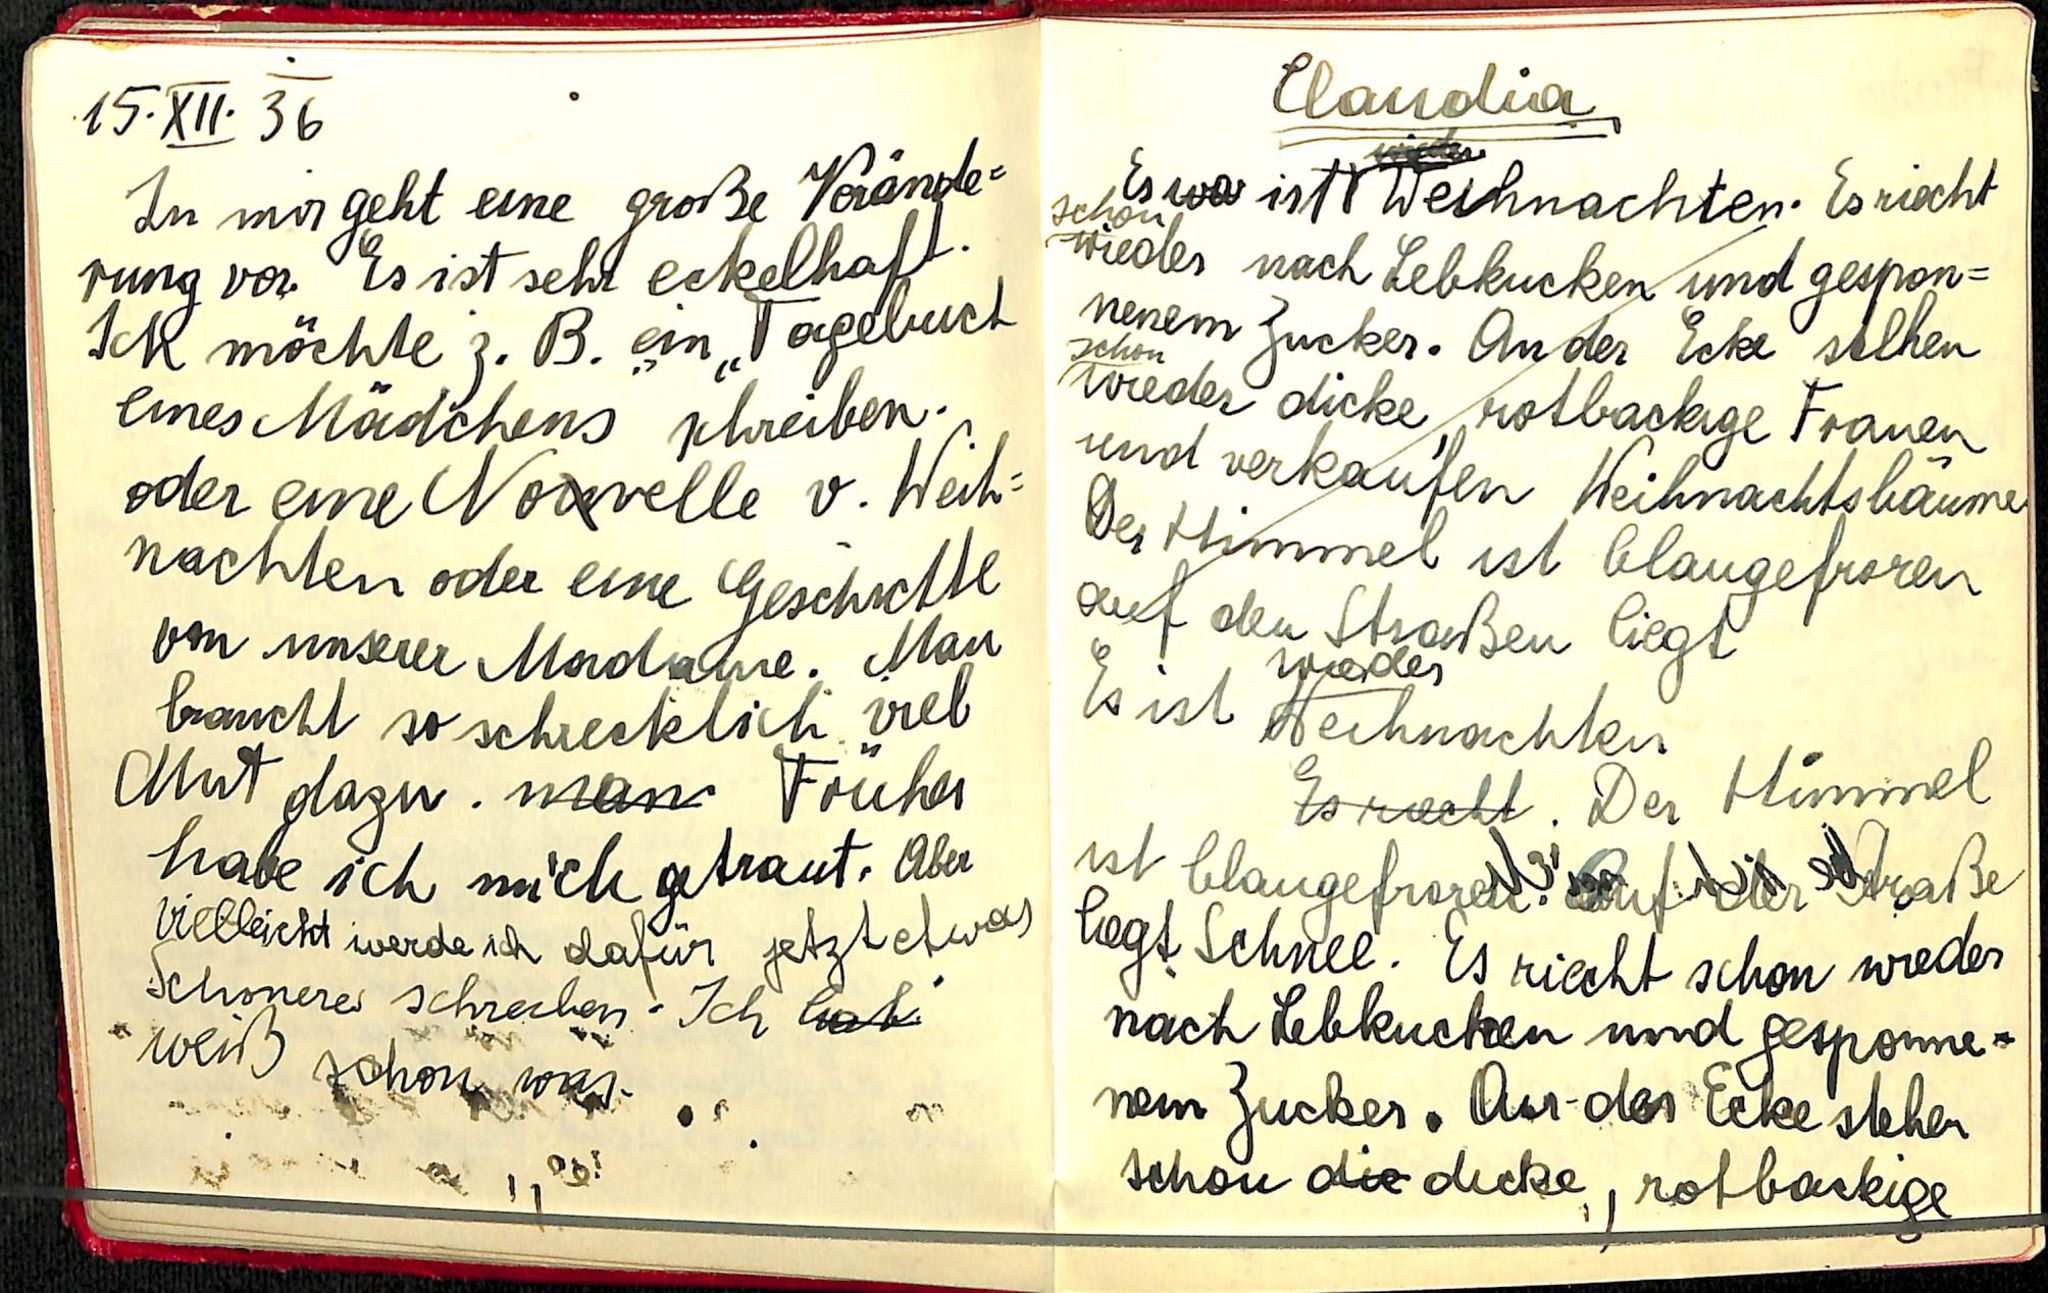 15. XII. 36
In mir geht eine große Verände=
rung vor. Es ist sehr eckelhaft.
Ich möchte z. B. „ein „Tagebuch
eines Mädchens schreiben.
oder eine Novelle v. Weih=
nachten oder eine Geschichte
von unserer Madame. Man
braucht so schrecklich viel
Mut dazu. man Früher
habe ich mich getraut. Aber
vielleicht werde ich dafür jetzt etwas
Schöneres schreiben. Ich hab
weiß schon was.
Claudia
wieder
Es war ist Weihnachten. Es riecht
schon
wieder nach Lebkuchen und gespon=
nenem Zucker. An der Ecke stehen
schon
wieder dicke, rotbackige Frauen
und verkaufen Weihnachtsbäume
Der Himmel ist blaugefroren
auf den Straßen liegt
wieder
Es ist Weihnachten
Es riecht. Der Himmel
ist blaugefroren. Auf der Straße
liegt Schnee. Es riecht schon wieder
nach Lebkuchen und gesponne=
nem Zucker. An der Ecke stehen
schon die dicke, rotbackige